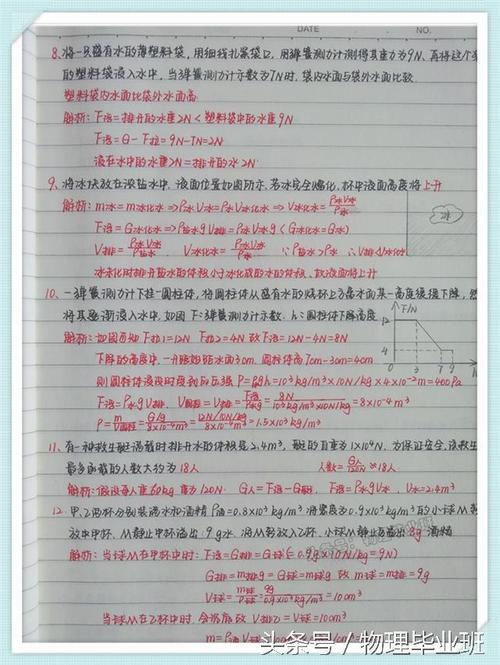 DATE NO.
8. 将一只盛有水的薄塑料袋，用细线扎紧袋口，用弹簧测力计测得其重力为9N，再将这个
的塑料袋浸入水中，当弹簧测力计示数为7N时，袋内水面与袋外水面比较
塑料袋内水面比袋外水面高
解析：F浮=排开的水重2N<塑料袋中的水重9N
F浮=G-F拉=9N-7N=2N
浸在水中的水重2N=排开的水2N
9. 将冰块放在浓盐水中，液面位置如图所示，若冰完全熔化，杯中液面高度将上升
解析：m冰=m冰化水⇒ρ冰V冰=ρ水V冰化水⇒V冰化水=ρ冰V冰/ρ水
F浮=G冰化水⇒ρ盐水gV排=ρ冰V冰g（G冰化水=G冰）
V排=ρ冰V冰/ρ盐水 V冰化水=ρ冰V冰/ρ水 ∵ρ盐水>ρ水 ∴V排<V冰化水
冰未化时排开盐水的体积小于冰化成的水的体积，故液面将上升
冰
10. 一弹簧测力计下挂一圆柱体，将圆柱体从盛有水的烧杯上方离水面某一高度缓缓下降，然
将其逐渐浸入水中，如图 F：弹簧测力计示数．h：圆柱体下降高度
F/N
12
4
3 7 9
解析：如图可知 F拉1=12N F拉2=4N 故F浮=12N-4N=8N
下降的高度中，一开始的距水面3cm，圆柱体高7cm-3cm=4cm
则圆柱体浸没时受到的压强 P=ρgh=10³kg/m³×10N/kg×4×10⁻²m=400Pa
F浮=ρ水gV排，V圆柱=V排=F浮/ρ水g=8N/10³kg/m³×10N/kg=8×10⁻⁴m³
ρ=m/V圆柱=G/g/8×10⁻⁴m³=12N/10N/kg/8×10⁻⁴m³=1.5×10³kg/m³
11. 有一种救生艇满载时排开水的体积是2.4m³，艇的自重为1×10⁴N，为保证安全，该救生
最多承载的人数大约为18人 人数=≈18人
解析：G人=F浮-G艇，F浮=ρ水gV水，V水=2.4m³
12. 甲、乙两杯分别装满水和酒精 ρ酒=0.8×10³kg/m³ 将密度为0.9×10³kg/m³的小球从
放中甲杯，从静止中杯溢出9g水，将从轻放入乙杯，小球从静止溢出8g酒精
解析：当球从在甲杯中时：F浮=G排=G球
G排=m排g=G球=m球g 故m球=m排=9g
V球=m球/ρ球=9g/0.9×10³kg/m³=10cm³
当球从在乙杯中时，会沉底故V排=V球=10cm³
头条号 / 物理毕业班